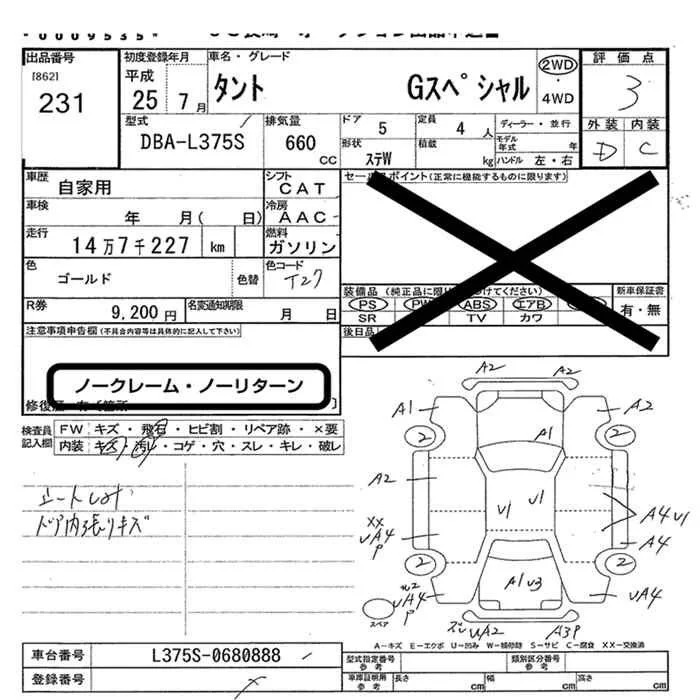 *0009535*
出品番号
[862]
231
初度登録年月
平成
25年7月
車名・グレード
タント Gスペシャル
2WD
・
4WD
評価点
3
外装 内装
D C
型式
DBA-L375S
排気量
660
CC
ドア 5
定員 4人
形状 ステW
積載 kg
ディーラー・並行
モデル年式 年
ハンドル 左・右
車歴
自家用
シフト
CAT
車検
年 月( 日)
冷房
AAC
走行
14万7千227 km
燃料
ガソリン
色
ゴールド
色替
色コード
T27
R券
9,200円
名変通知期限
月 日
セールスポイント(正常に機能するものに限ります)
新車保証書
有・無
PS
ABS
エアB
SR
TV
カワ
後日品
注意事項申告欄(不具合内容等は具体的に記入して下さい)
ノークレーム・ノーリターン
検査員
記入欄
FW キズ・飛石・ヒビ割・リペア跡・×要
内装 キズ・汚レ・コゲ・穴・スレ・キレ・破レ
シートしみ
ドア内張りキズ
A2 A2
A1 A2
2 2
A1
A2
U1 U1
A4 U1
XX
UA4
P
A4
2 2
A1 U3
UA4
P
UA4
スペア
UA2
A3P
A-キズ E-エクボ U-凹み W-補修跡 S-サビ C-腐食 XX-交換済
車台番号
L375S-0680888
登録番号
型式指定番号
参考
類別区分番号
参考
車庫証明用
参考
長さ cm
幅 cm
高さ cm